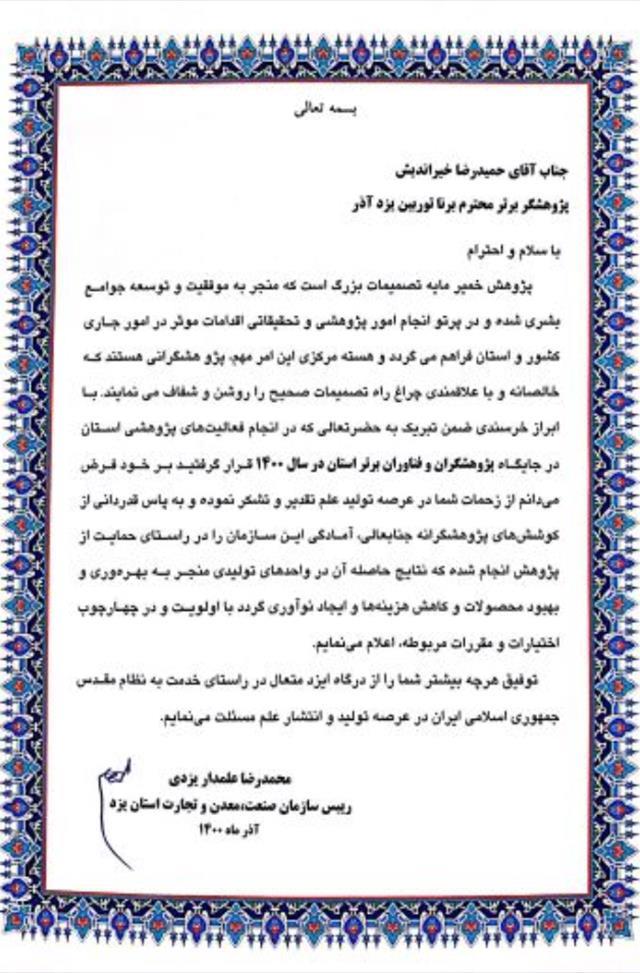 بسمه تعالی
جناب آقای حمیدرضا خیراندیش
پژوهشگر برتر محترم برنا توربین یزد آذر
با سلام و احترام
پژوهش خمیر مایه تصمیمات بزرگ است که منجر به موفقیت و توسعه جوامع
بشری شده و در پرتو انجام امور پژوهشی و تحقیقاتی اقدامات موثر در امور جاری
کشور و استان فراهم می گردد و هسته مرکزی این امر مهم، پژو هشگرانی هستند که
خالصانه و با علاقمندی چراغ راه تصمیمات صحیح را روشن و شفاف می نمایند. با
ابراز خرسندی ضمن تبریک به حضرتعالی که در انجام فعالیت‌های پژوهشی استان
در جایگاه پژوهشگران و فناوران برتر استان در سال ۱۴۰۰ قرار گرفتید بر خود فرض
می‌دانم از زحمات شما در عرصه تولید علم تقدیر و تشکر نموده و به پاس قدردانی از
کوشش‌های پژوهشگرانه جنابعالی، آمادگی این سازمان را در راستای حمایت از
پژوهش انجام شده که نتایج حاصله آن در واحدهای تولیدی منجر به بهره‌وری و
بهبود محصولات و کاهش هزینه‌ها و ایجاد نوآوری گردد با اولویت و در چهارچوب
اختیارات و مقررات مربوطه، اعلام می‌نمایم.
توفیق هرچه بیشتر شما را از درگاه ایزد متعال در راستای خدمت به نظام مقدس
جمهوری اسلامی ایران در عرصه تولید و انتشار علم مسئلت می‌نمایم.
محمدرضا علمدار یزدی
رییس سازمان صنعت،معدن و تجارت استان یزد
آذر ماه ۱۴۰۰